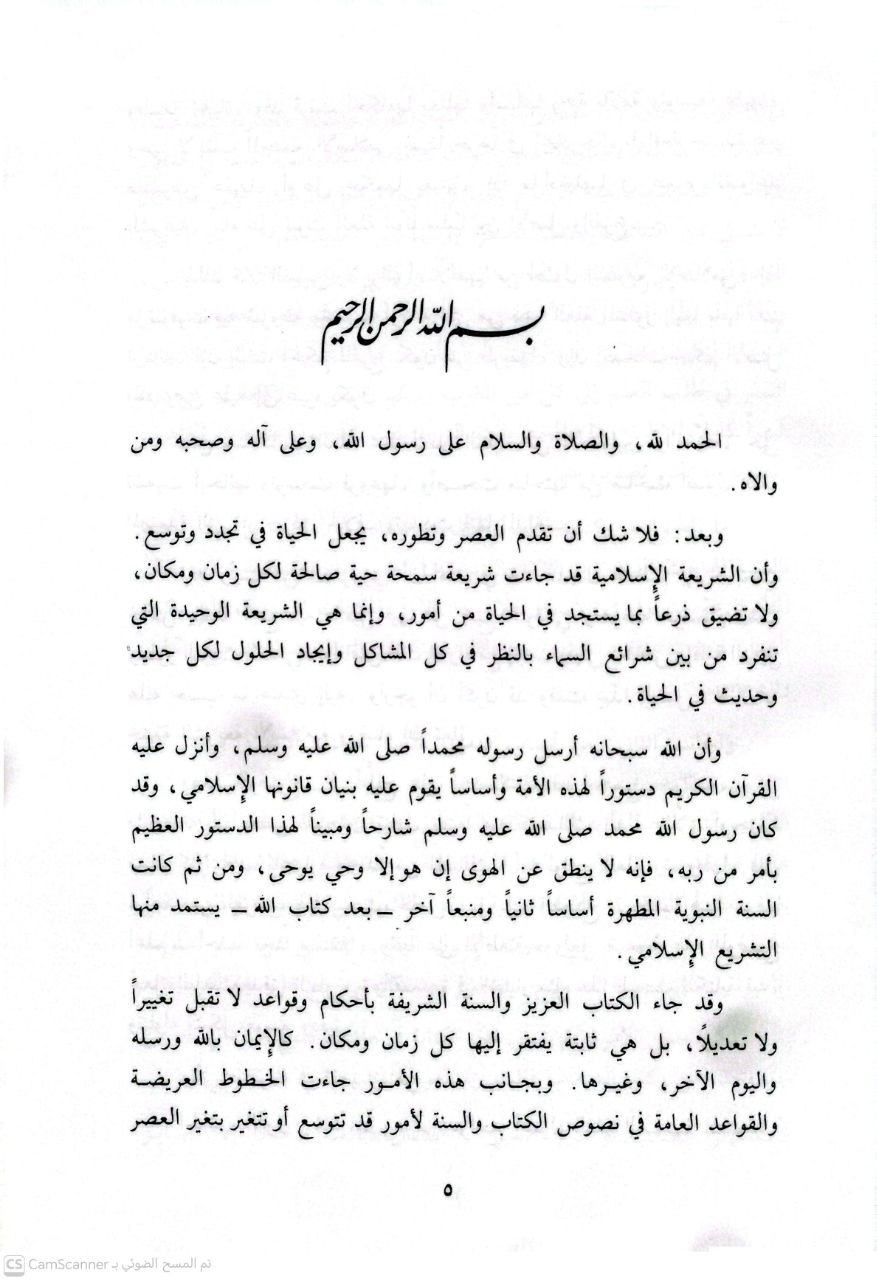 بسم الله الرحمن الرحيم
الحمد لله، والصلاة والسلام على رسول الله، وعلى آله وصحبه ومن
والاه.
وبعد: فلا شك أن تقدم العصر وتطوره، يجعل الحياة في تجدد وتوسع.
وأن الشريعة الإسلامية قد جاءت شريعة سمحة حية صالحة لكل زمان ومكان،
ولا تضيق ذرعاً بما يستجد في الحياة من أمور، وإنما هي الشريعة الوحيدة التي
تنفرد من بين شرائع السماء بالنظر في كل المشاكل وإيجاد الحلول لكل جديد
وحديث في الحياة.
وأن الله سبحانه أرسل رسوله محمداً صلى الله عليه وسلم، وأنزل عليه
القرآن الكريم دستوراً لهذه الأمة وأساساً يقوم عليه بنيان قانونها الإسلامي، وقد
كان رسول الله محمد صلى الله عليه وسلم شارحاً ومبيناً لهذا الدستور العظيم
بأمر من ربه، فإنه لا ينطق عن الهوى إن هو إلا وحي يوحى، ومن ثم كانت
السنة النبوية المطهرة أساساً ثانياً ومنبعاً آخر ـ بعد كتاب الله ـ يستمد منها
التشريع الإسلامي.
وقد جاء الكتاب العزيز والسنة الشريفة بأحكام وقواعد لا تقبل تغييراً
ولا تعديلاً، بل هي ثابتة يفتقر إليها كل زمان ومكان. كالإيمان بالله ورسله
واليوم الآخر، وغيرها. وبجانب هذه الأمور جاءت الخطوط العريضة
والقواعد العامة في نصوص الكتاب والسنة لأمور قد تتوسع أو تتغير بتغير العصر
٥
CS CamScanner تم المسح الضوئي بـ